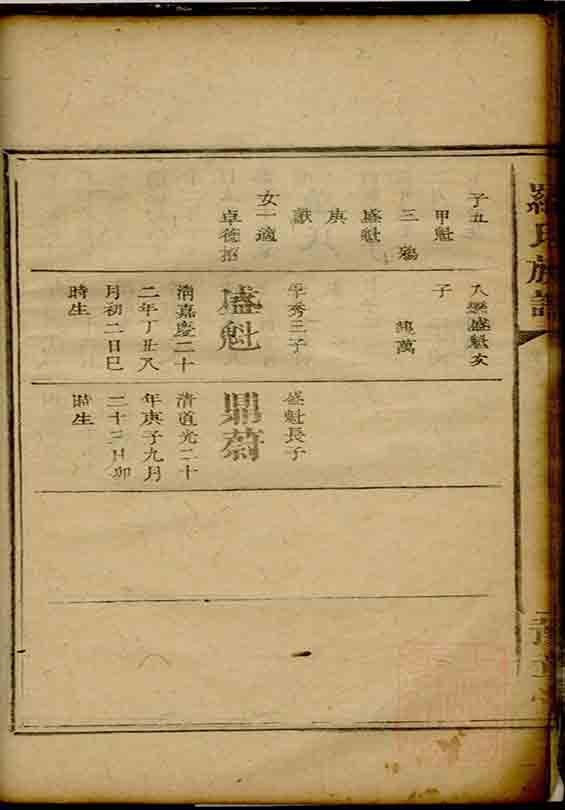 羅氏族譜
子五
甲魁
三鴉
盛魁
庚
獻
女一適
卓德招
子
魏萬
平秀三子
盛魁
清嘉慶二十
二年丁丑又
月初二日巳
時生
盛魁長子
鼎蔚
清道光二十
年庚子九月
二十二日卯
時生